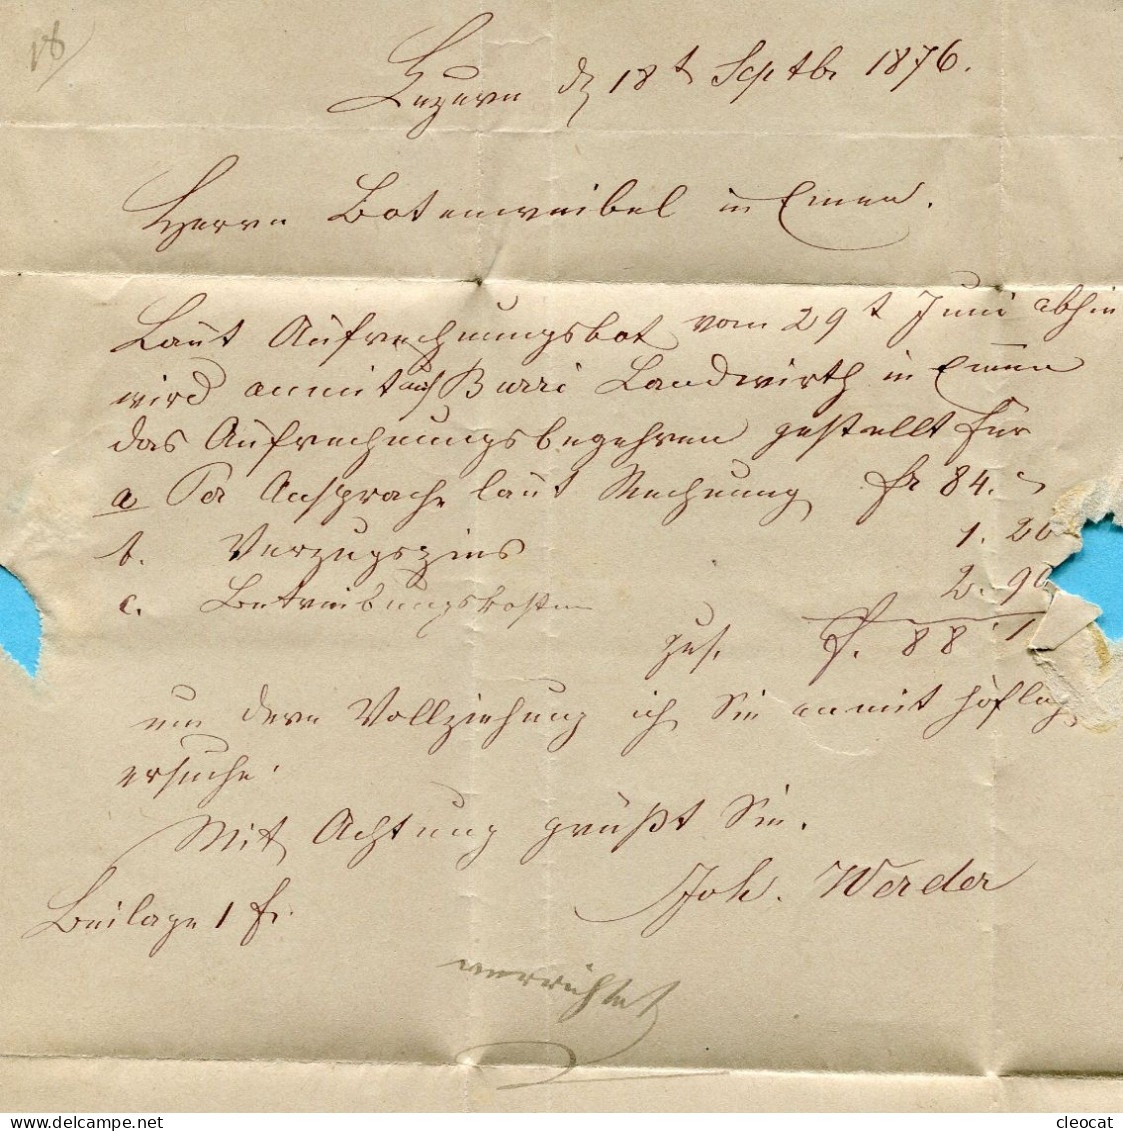 18
Luzern d 18t Septbr 1876.
Herrn Botenweibel in Emen.
Laut Aufrechnungsbot vom 29t Juni abhin
wird anmit auf Burri Landwirth in Emmen
das Aufrechnungsbegehren gestellt für
a Per Ansprache laut Rechnung fr 84. "
b. Verzugszins 1. 20
c. Betreibungskosten 2. 90
zus. fr. 88. 1
um dern Vollziehung ich Sie anmit höflich
ersuche.
Mit Achtung grüßt Sie.
Joh. Werder
Beilage 1 fr.
verrichtet
cleocat